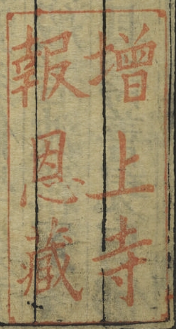 增上寺
報恩藏